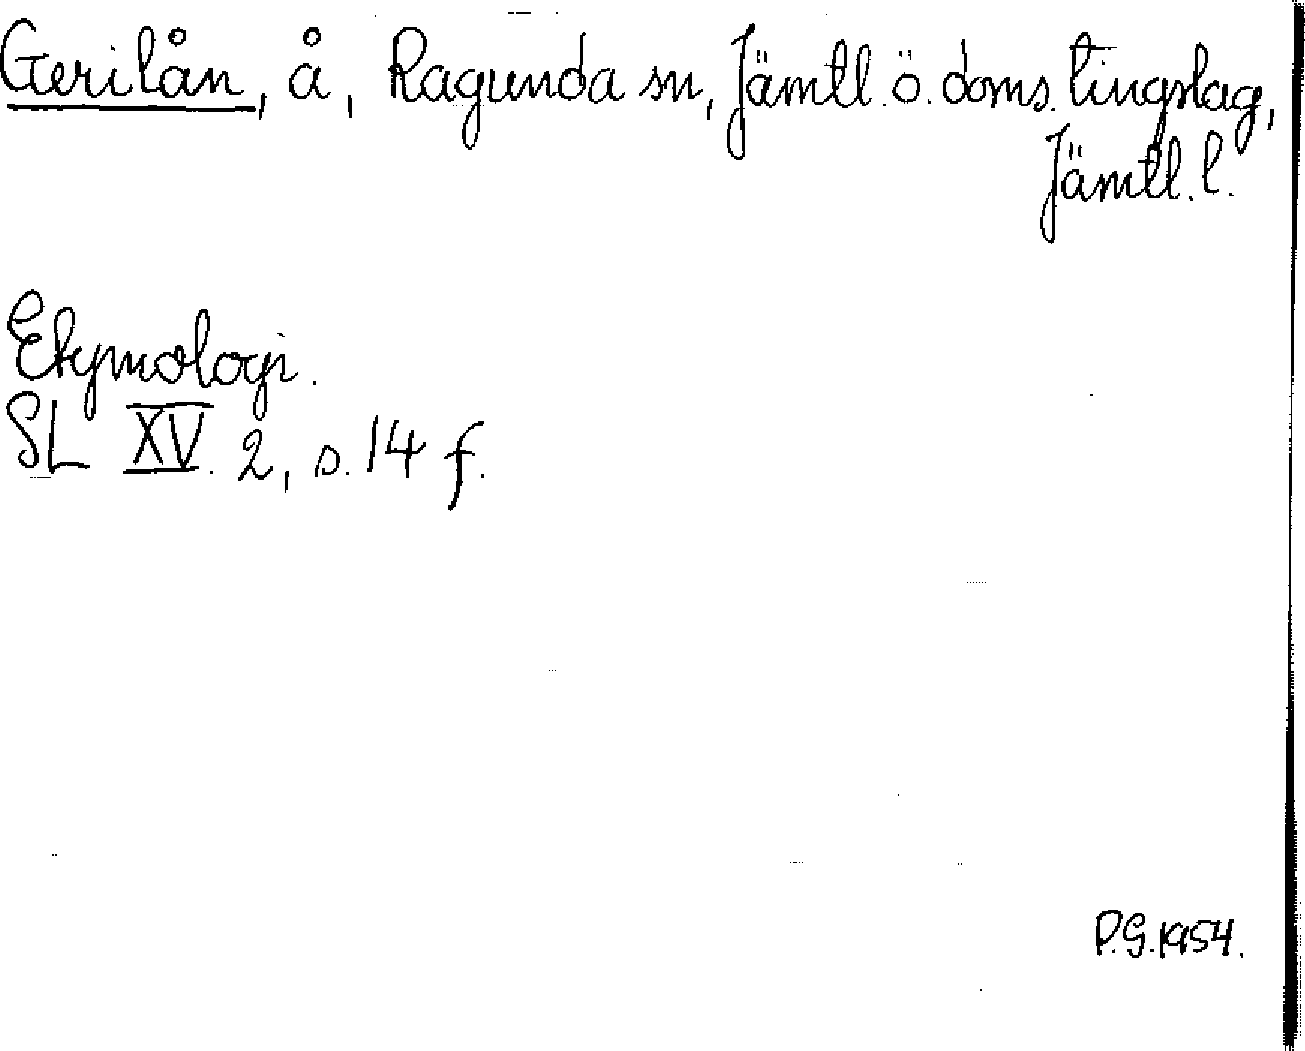 Gerilån, å, Ragunda sn, Jämtl. ö. doms. tingslag,
Jämtl. l.
Etymologi.
SL XV. 2, s. 14 f.
P.G. 1954.